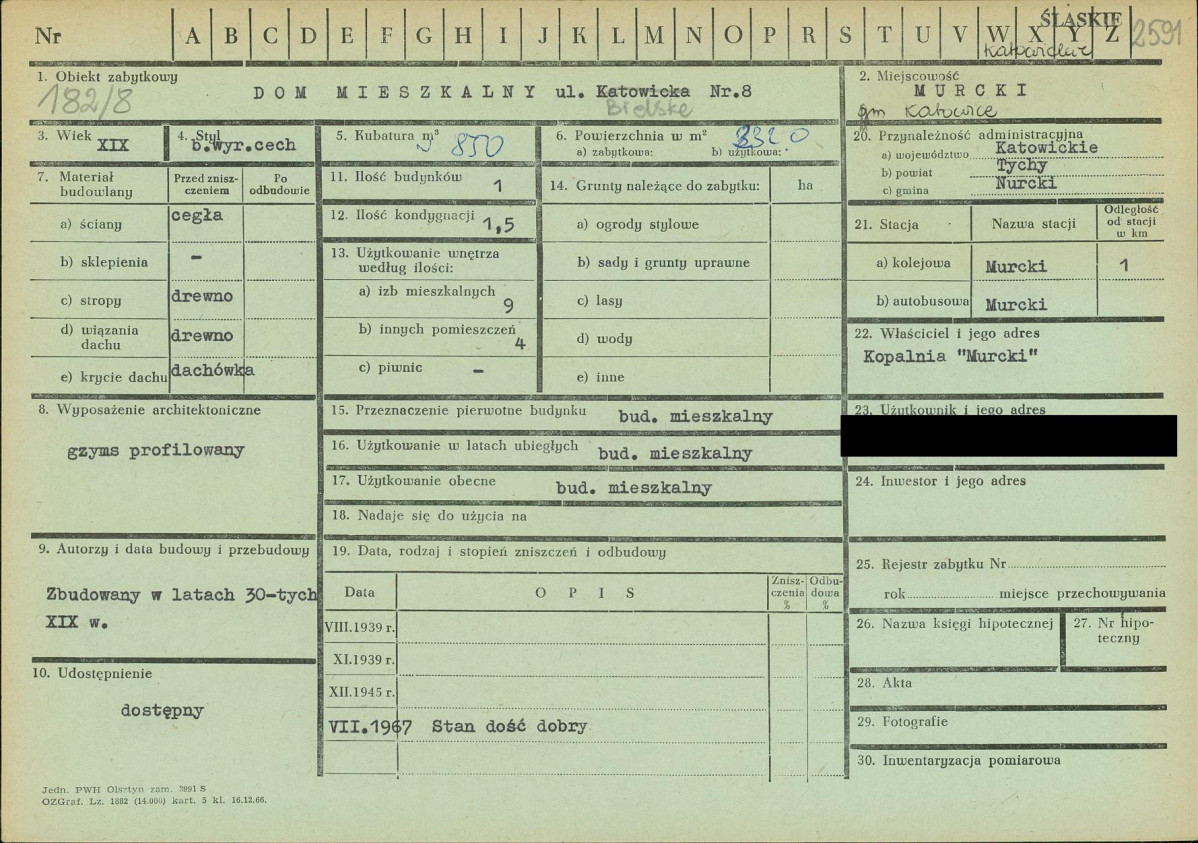 Nr A B C D E F G H I J K L M N O P R S T U V W X Y Z
ŚLĄSKIE
2591
1. Obiekt zabytkowy
182/8
DOM MIESZKALNY ul. Katowicka Nr.8
2. Miejscowość
MURCKI
gm Katowice
3. Wiek
XIX
4. Styl
b.wyr.cech
5. Kubatura m³
850
6. Powierzchnia w m²
a) zabytkowa: b) użytkowa:
20. Przynależność administracyjna
a) województwo Katowickie
b) powiat Tychy
c) gmina Nurcki
7. Materiał budowlany
Przed zniszczeniem
Po odbudowie
a) ściany cegła
b) sklepienia -
c) stropy drewno
d) wiązania dachu drewno
e) krycie dachu dachówka
11. Ilość budynków 1
12. Ilość kondygnacji 1,5
13. Użytkowanie wnętrza
według ilości:
a) izb mieszkalnych 9
b) innych pomieszczeń 4
c) piwnic -
14. Grunty należące do zabytku: ha
a) ogrody stylowe
b) sady i grunty uprawne
c) lasy
d) wody
e) inne
21. Stacja
Nazwa stacji
Odległość od stacji w km
a) kolejowa Murcki 1
b) autobusowa Murcki
22. Właściciel i jego adres
Kopalnia "Murcki"
8. Wyposażenie architektoniczne
gzyms profilowany
15. Przeznaczenie pierwotne budynku bud. mieszkalny
16. Użytkowanie w latach ubiegłych bud. mieszkalny
17. Użytkowanie obecne bud. mieszkalny
18. Nadaje się do użycia na
23. Użytkownik i jego adres
24. Inwestor i jego adres
9. Autorzy i data budowy i przebudowy
Zbudowany w latach 30-tych
XIX w.
10. Udostępnienie
dostępny
19. Data, rodzaj i stopień zniszczeń i odbudowy
Data
OPIS
Zniszczenia %
Odbudowa %
VIII.1939 r.
XI.1939 r.
XII.1945 r.
VII.1967 Stan dość dobry
25. Rejestr zabytku Nr
rok miejsce przechowywania
26. Nazwa księgi hipotecznej
27. Nr hipoteczny
28. Akta
29. Fotografie
30. Inwentaryzacja pomiarowa
Jedn. PWH Olsztyn zam. 3991 S
OZGraf. Lz. 1882 (14.000) kart. 5 kl. 16.12.66.